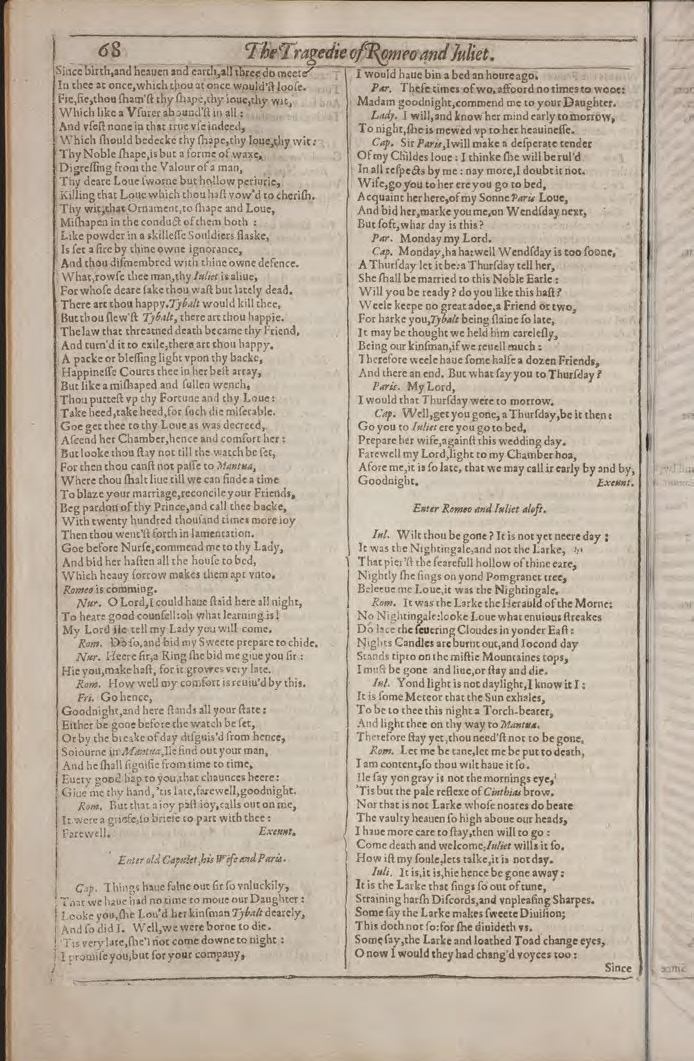 68
The Tragedie of Romeo and Iuliet.
Since birth,and heauen and earth,all three do meete
In thee at once,which thou at once would'ſt looſe.
Fie,fie,thou ſham'ſt thy ſhape,thy loue,thy wit,
Which like a Vſurer abound'ſt in all:
And vſeſt none in that true vſe indeed,
Which ſhould bedecke thy ſhape,thy loue,thy wit:
Thy Noble ſhape,is but a forme of waxe,
Digreſſing from the Valour of a man,
Thy deare Loue ſworne but hollow periurie,
Killing that Loue which thou haſt vow'd to cheriſh.
Thy wit,that Ornament,to ſhape and Loue,
Miſhapen in the conduct of them both :
Like powder in a skilleſſe Souldiers flaske,
Is ſet a fire by thine owne ignorance,
And thou diſmembred with thine owne defence.
What,rowſe thee man,thy Iuliet is aliue,
For whoſe deare ſake thou waſt but lately dead.
There art thou happy.Tybalt would kill thee,
But thou ſlew'ſt Tybalt, there art thou happie.
The law that threatned death became thy Friend,
And turn'd it to exile,there art thou happy.
A packe or bleſſing light vpon thy backe,
Happineſſe Courts thee in her beſt array,
But like a miſhaped and ſullen wench,
Thou putteſt vp thy Fortune and thy Loue:
Take heed,take heed,for ſuch die miſerable.
Goe get thee to thy Loue as was decreed,
Aſcend her Chamber,hence and comfort her :
But looke thou ſtay not till the watch be ſet,
For then thou canſt not paſſe to Mantua,
Where thou ſhalt liue till we can finde a time
To blaze your marriage,reconcile your Friends,
Beg pardon of thy Prince,and call thee backe,
With twenty hundred thouſand times more ioy
Then thou went'ſt forth in lamentation.
Goe before Nurſe,commend me to thy Lady,
And bid her haſten all the houſe to bed,
Which heauy ſorrow makes them apt vnto.
Romeo is comming.
Nur. O Lord,I could haue ſtaid here all night,
To heare good counſell:oh what learning is !
My Lord Ile tell my Lady you will come.
Rom. Do ſo,and bid my Sweete prepare to chide.
Nur. Heere ſir,a Ring ſhe bid me giue you ſir :
Hie you,make haſt, for it growes very late.
Rom. How well my comfort is reuiu'd by this.
Fri. Go hence,
Goodnight,and here ſtands all your ſtate :
Either be gone before the watch be ſet,
Or by the breake of day diſguis'd from hence,
Soiourne in Mantua,Ile find out your man,
And he ſhall ſignifie from time to time,
Euery good hap to you,that chaunces heere :
Giue me thy hand, 'tis late,farewell,goodnight.
Rom. But that a ioy paſt ioy,calls out on me,
It were a griefe,ſo briefe to part with thee :
Farewell. Exeunt.
Enter old Capulet,his Wife and Paris.
Cap. Things haue falne out ſir ſo vnluckily,
That we haue had no time to moue our Daughter :
Looke you,ſhe Lou'd her kinſman Tybalt dearely,
And ſo did I. Well,we were borne to die.
'Tis very late,ſhe'l not come downe to night :
I promiſe you,but for your company,
I would haue bin a bed an houre ago.
Par. Theſe times of wo, affoord no times to wooe:
Madam goodnight,commend me to your Daughter.
Lady. I will,and know her mind early to morrow,
To night,ſhe is mewed vp to her heauineſſe.
Cap. Sir Paris,I will make a deſperate tender
Of my Childes loue : I thinke ſhe will be rul'd
In all reſpects by me : nay more,I doubt it not.
Wife,go you to her ere you go to bed,
Acquaint her here,of my Sonne Paris Loue,
And bid her,marke you me,on Wendſday next,
But ſoft,what day is this?
Par. Monday my Lord.
Cap. Monday,ha ha:well Wendſday is too ſoone,
A Thurſday let it be:a Thurſday tell her,
She ſhall be married to this Noble Earle :
Will you be ready ? do you like this haſt ?
Weele keepe no great adoe,a Friend or two,
For harke you,Tybalt being ſlaine ſo late,
It may be thought we held him careleſly,
Being our kinſman,if we reuell much :
Therefore weele haue ſome halfe a dozen Friends,
And there an end. But what ſay you to Thurſday ?
Paris. My Lord,
I would that Thurſday were to morrow.
Cap. Well,get you gone, a Thurſday,be it then :
Go you to Iuliet ere you go to bed,
Prepare her wife,againſt this wedding day.
Farewell my Lord,light to my Chamber hoa,
Afore me,it is ſo late, that we may call it early by and by,
Goodnight. Exeunt.
Enter Romeo and Iuliet aloft.
Iul. Wilt thou be gone ? It is not yet neere day :
It was the Nightingale,and not the Larke,
That pier'ſt the fearefull hollow of thine eare,
Nightly ſhe ſings on yond Pomgranet tree,
Beleeue me Loue,it was the Nightingale.
Rom. It was the Larke the Herauld of the Morne:
No Nightingale:looke Loue what enuious ſtreakes
Do lace the ſeuering Cloudes in yonder Eaſt :
Nights Candles are burnt out,and Iocond day
Stands tipto on the miſtie Mountaines tops,
I muſt be gone and liue,or ſtay and die.
Iul. Yond light is not daylight,I know it I :
It is ſome Meteor that the Sun exhales,
To be to thee this night a Torch-bearer,
And light thee on thy way to Mantua.
Therefore ſtay yet,thou need'ſt not to be gone,
Rom. Let me be tane,let me be put to death,
I am content,ſo thou wilt haue it ſo.
Ile ſay yon gray is not the mornings eye,
'Tis but the pale reflexe of Cinthias brow.
Nor that is not Larke whoſe noates do beate
The vaulty heauen ſo high aboue our heads,
I haue more care to ſtay,then will to go :
Come death and welcome,Iuliet wills it ſo.
How iſt my ſoule,lets talke,it is not day.
Iuli. It is,it is,hie hence be gone away :
It is the Larke that ſings ſo out of tune,
Straining harſh Diſcords,and vnpleaſing Sharpes.
Some ſay the Larke makes ſweete Diuiſion;
This doth not ſo:for ſhe diuideth vs.
Some ſay,the Larke and loathed Toad change eyes,
O now I would they had chang'd voyces too :
Since